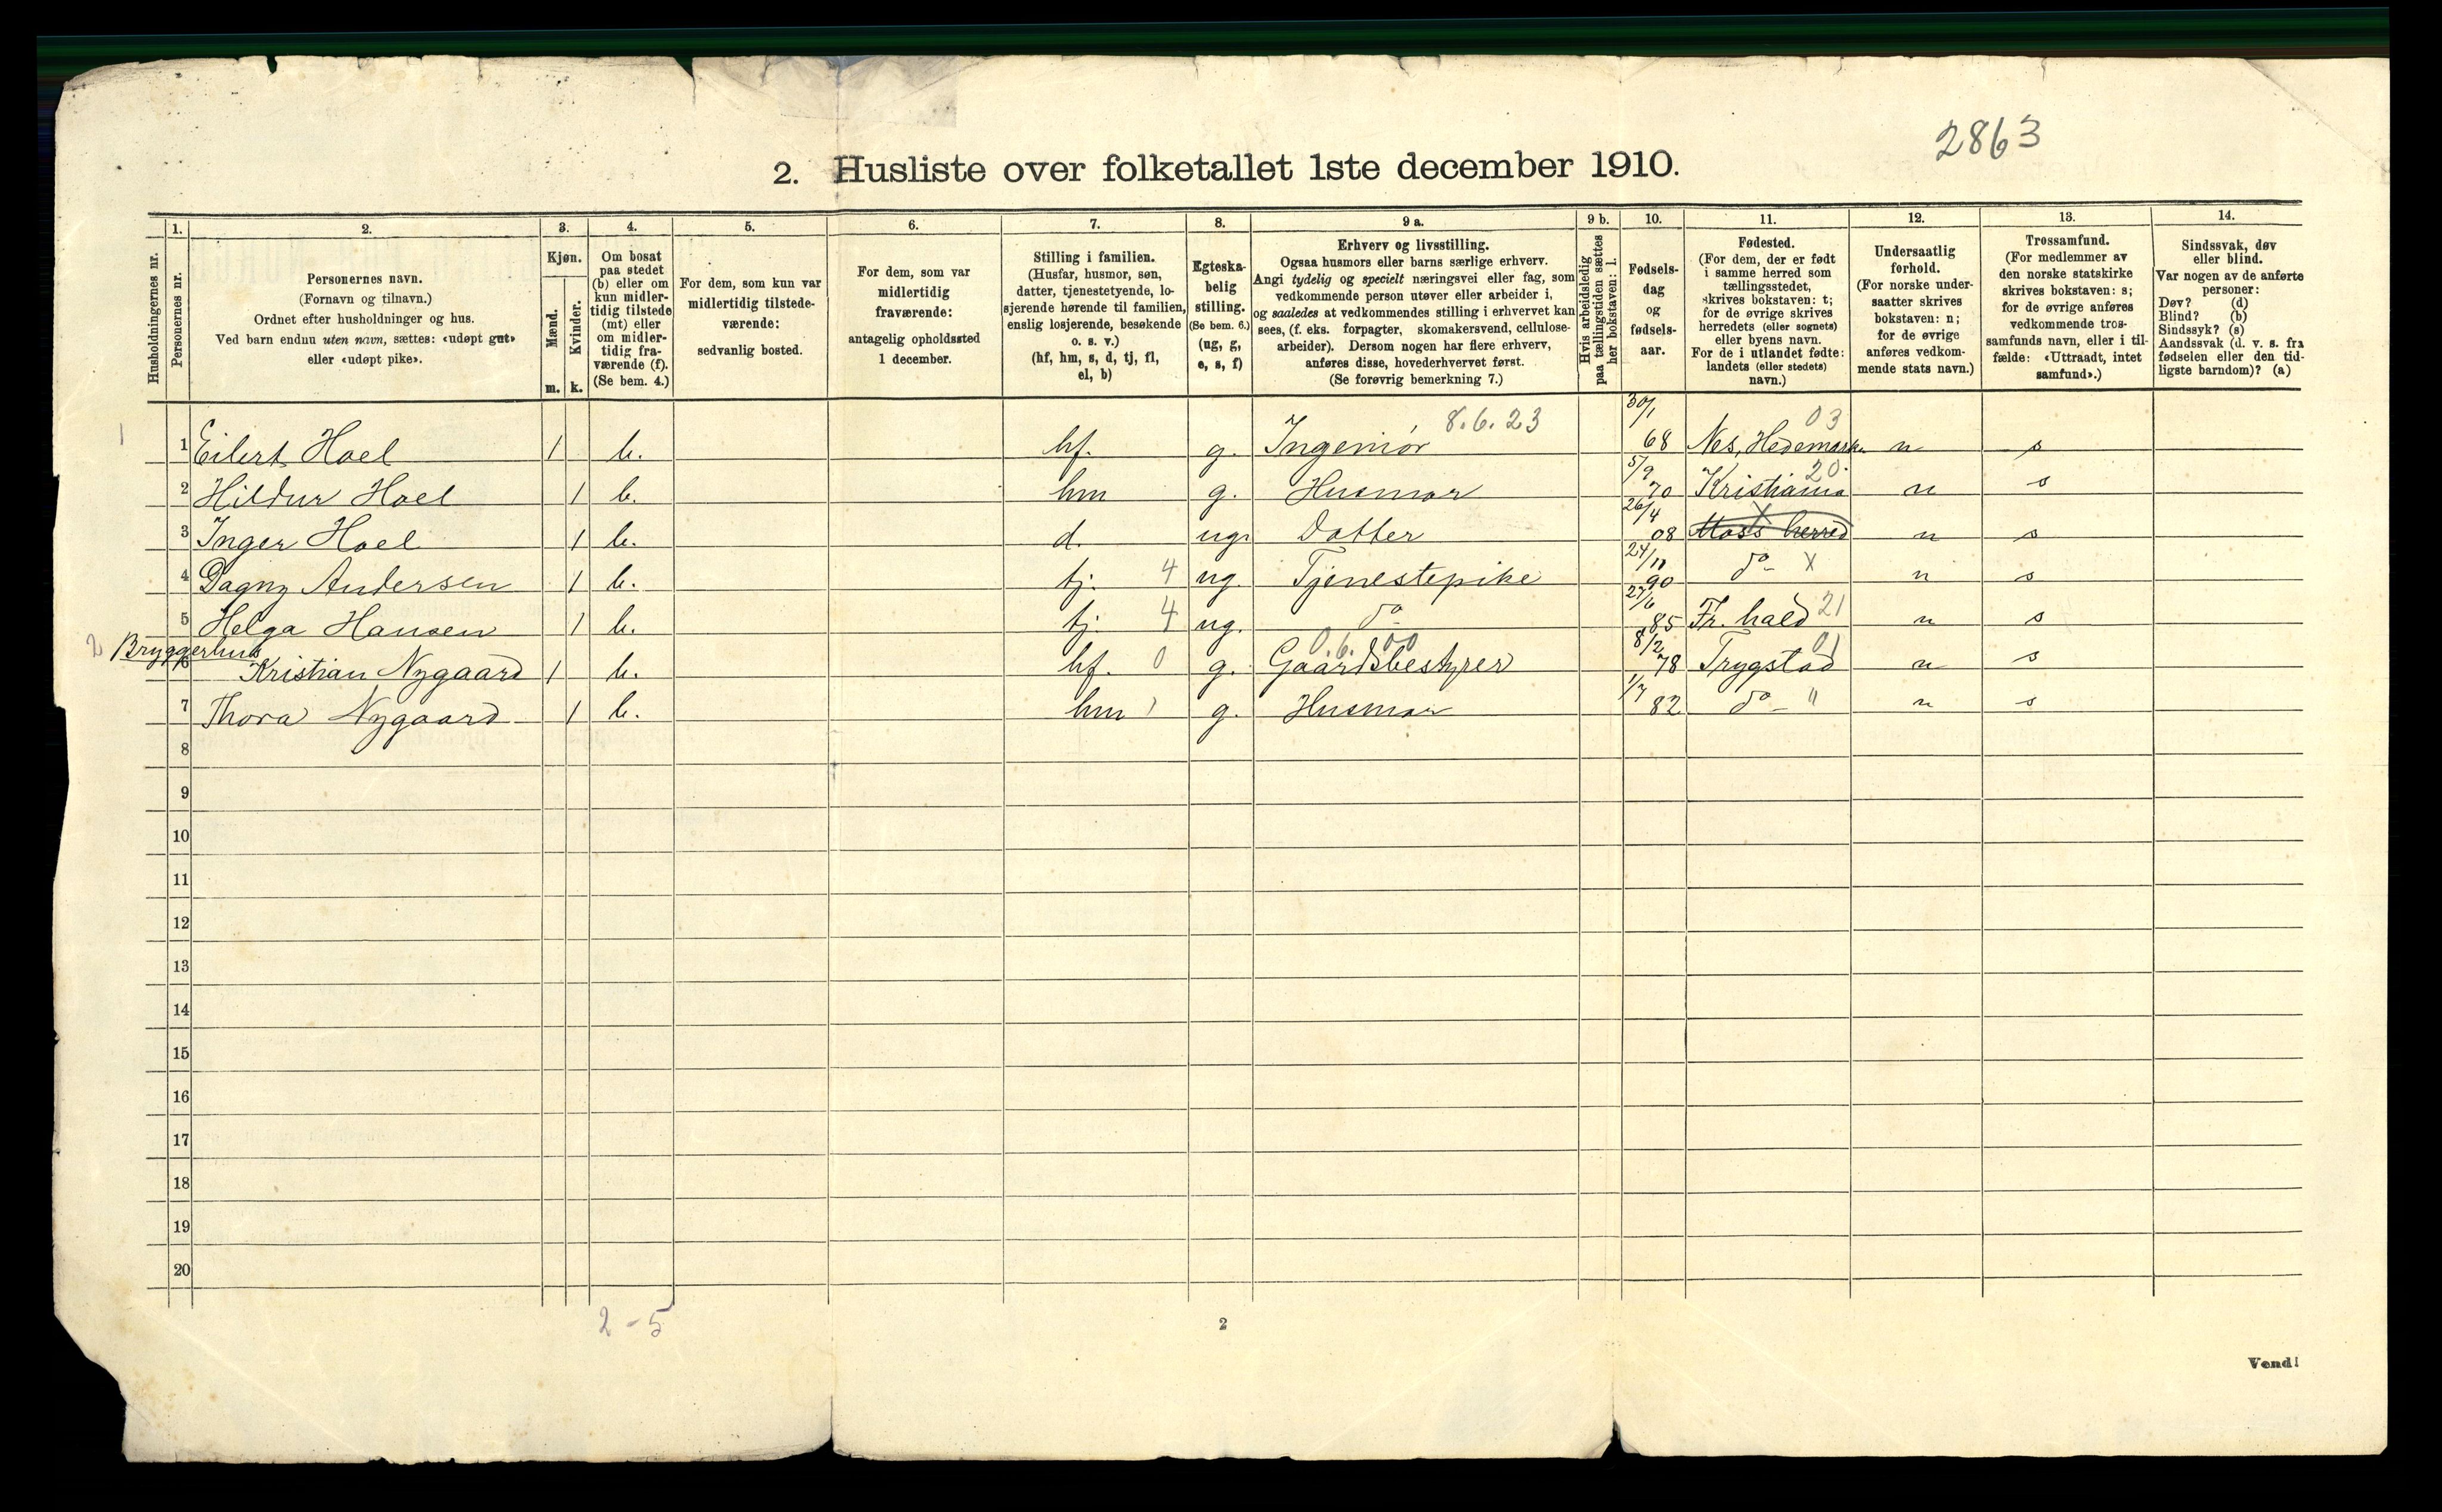 2863
2. Husliste over folketallet 1ste december 1910.
Husholdningernes nr.
1.
Personernes nr.
2.
Personernes navn.
(Fornavn og tilnavn.)
Ordnet efter husholdninger og hus.
Ved barn endnu uten navn, sættes: «udøpt gut»
eller «udøpt pike».
3.
Kjøn.
Mænd.
m.
Kvinder.
k.
4.
Om bosat
paa stedet
(b) eller om
kun midler-
tidig tilstede
(mt) eller
om midler-
tidig fra-
værende (f).
(Se bem. 4.)
5.
For dem, som kun var
midlertidig tilstede-
værende:
sedvanlig bosted.
6.
For dem, som var
midlertidig
fraværende:
antagelig opholdssted
1 december.
7.
Stilling i familien.
(Husfar, husmor, søn,
datter, tjenestetyende, lo-
sjerende hørende til familien,
enslig losjerende, besøkende
o. s. v.)
(hf, hm, s, d, tj, fl,
el, b)
8.
Egteska-
belig
stilling.
(Se bem. 6.)
(ug, g,
e, s, f)
9 a.
Erhverv og livsstilling.
Ogsaa husmors eller barns særlige erhverv.
Angi tydelig og specielt næringsvei eller fag, som
vedkommende person utøver eller arbeider i,
og saaledes at vedkommendes stilling i erhvervet kan
sees, (f. eks. forpagter, skomakersvend, cellulose-
arbeider). Dersom nogen har flere erhverv,
anføres disse, hovederhvervet først.
(Se forøvrig bemerkning 7.)
9 b.
Hvis arbeidsledig
paa tællingstiden sættes
her bokstaven: l.
10.
Fødsels-
dag
og
fødsels-
aar.
11.
Fødested.
(For dem, der er født
i samme herred som
tællingsstedet,
skrives bokstaven: t;
for de øvrige skrives
herredets (eller sognets)
eller byens navn.
For de i utlandet fødte:
landets (eller stedets)
navn.)
12.
Undersaatlig
forhold.
(For norske under-
saatter skrives
bokstaven: n;
for de øvrige
anføres vedkom-
mende stats navn.)
13.
Trossamfund.
(For medlemmer av
den norske statskirke
skrives bokstaven: s;
for de øvrige anføres
vedkommende tros-
samfunds navn, eller i til-
fælde: «Uttraadt, intet
samfund».)
14.
Sindssvak, døv
eller blind.
Var nogen av de anførte
personer:
Døv? (d)
Blind? (b)
Sindssyk? (s)
Aandssvak (d. v. s. fra
fødselen eller den tid-
ligste barndom)? (a)
8.6.23 30/1 03
1 1 Eilert Hoel 1 b. hf. g. Ingeniør 68 Nes, Hedemark. n s
5/9 20.
2 Hildur Hoel 1 b. hm g. Husmor 70 Kristiania n s
26/4 X
3 Inger Hoel 1 b. d. ug. Datter 08 Moss herred n s
24/11
4 Dagny Andersen 1 b. tj. 4 ug. Tjenestepike 90 do X n s
27/6
5 Helga Hansen 1 b. tj. 4 ug. do 85 Fr. hald 21 n s
2 Bryggerhus 0.6.00 8/2 01
6 Kristian Nygaard 1 b. hf. 0 g. Gaardsbestyrer 78 Trygstad n s
1/7
7 Thora Nygaard 1 b. hm 1 g. Husmor 82 do " n s
8
9
10
11
12
13
14
15
16
17
18
19
20
2-5
2
Vend!